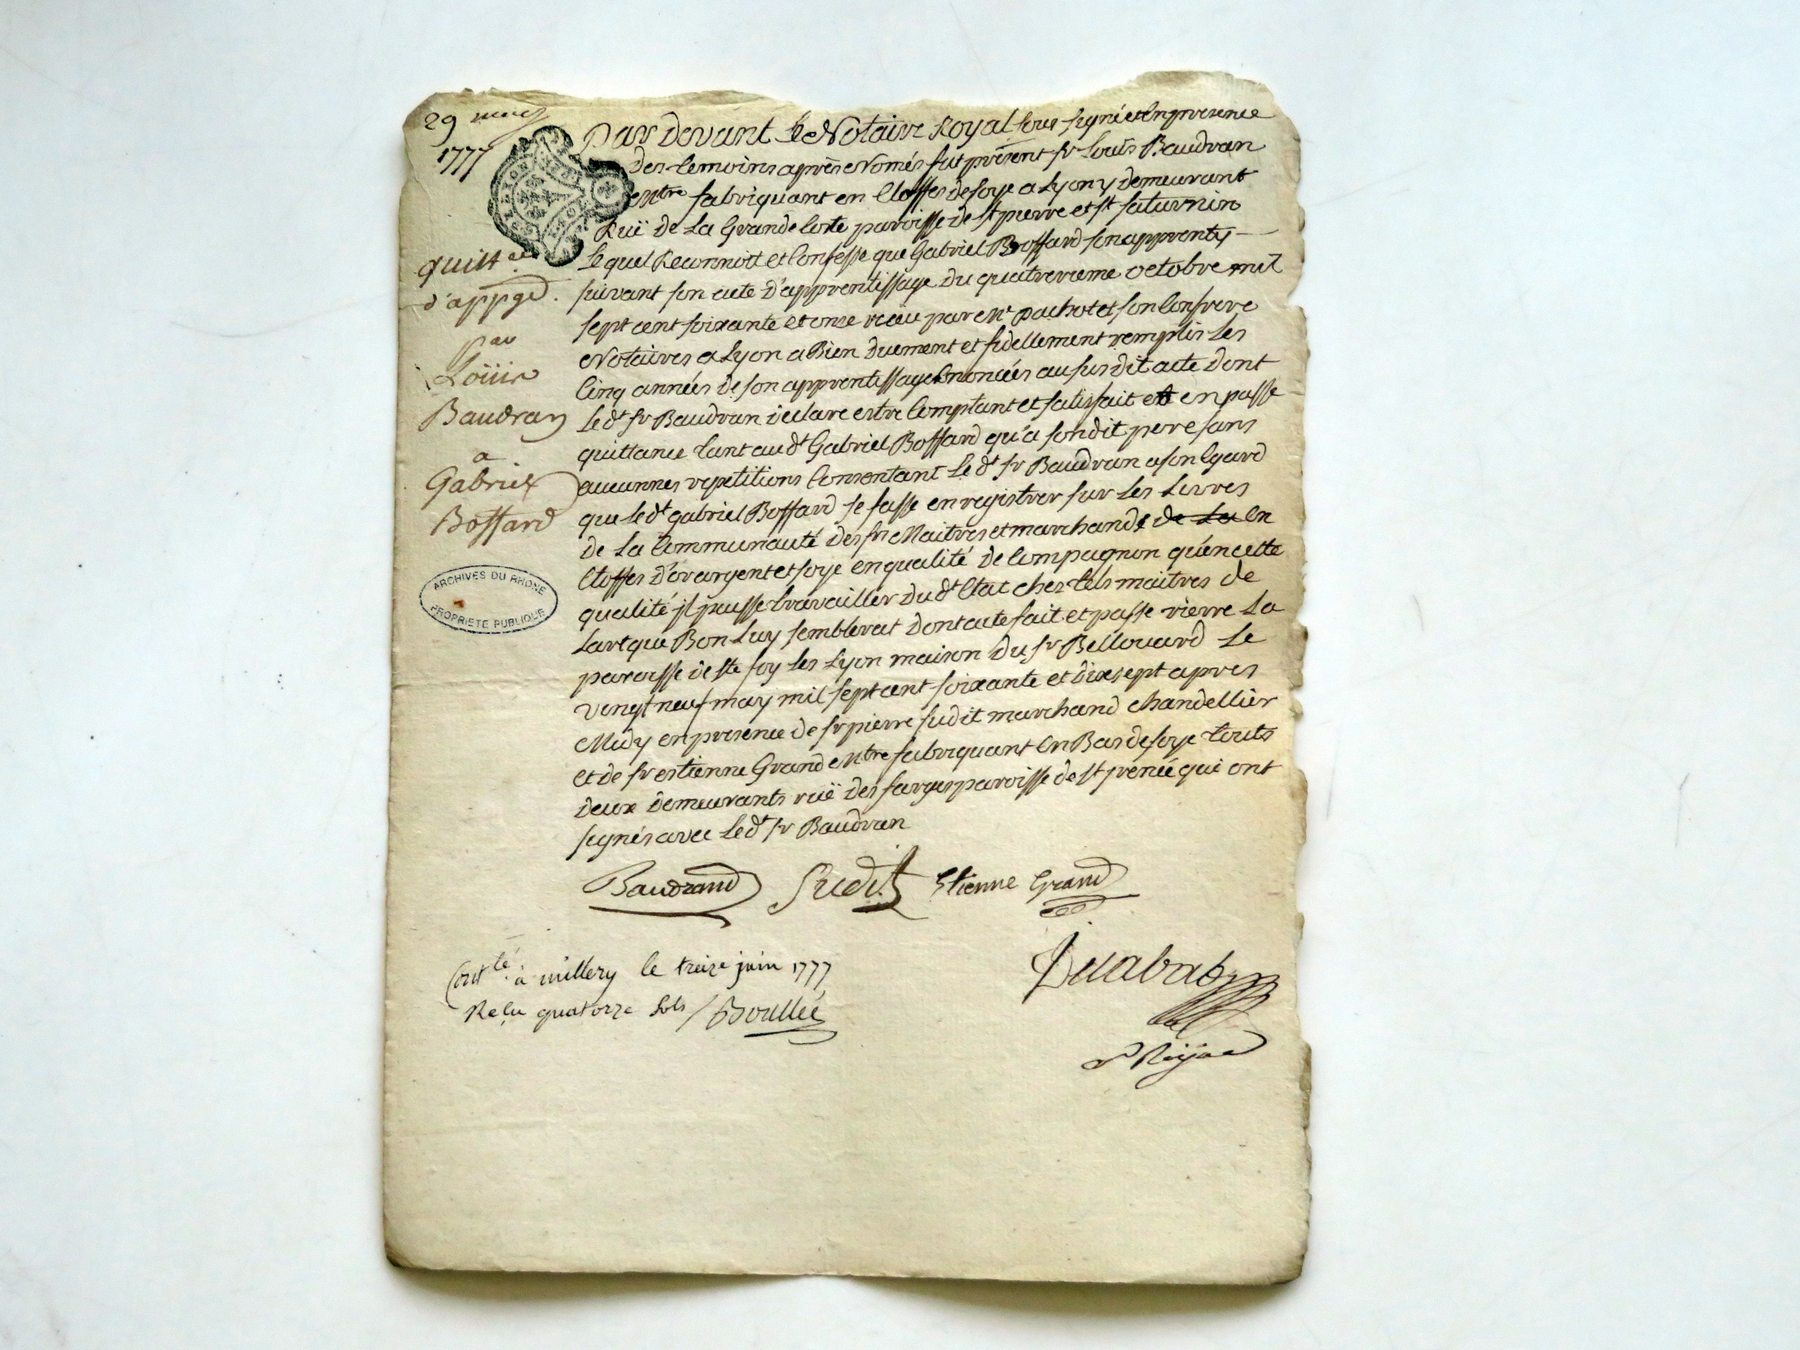 29 may
1777
quitt.ce
d'appge.
par
Loüis
Baudran
a
Gabriel
Boffard
ARCHIVES DU RHONE
PROPRIETE PUBLIQUE
Par Devant le Notaire Royal sous signé et en presence
des temoins apres només fut présent sr Louis Baudran
mtre fabriquant en Etoffes de soye a Lyon y demeurant
Ruë de La Grande Coste paroisse de st pierre et st saturnin
Lequel Reconnoit et Confesse que Gabriel Boffard son apprenty
suivant son acte D'apprentissage du quatrieme octobre mil
sept cent soixante et onze reçu par Me pachot et son Confrere
Notaires a Lyon a Bien Duement et fidellement remplis Les
Cinq années de son apprentissage Enoncées au susdit acte dont
Ledt sr Baudran declare estre Comptant et satisfait et en passe
quittance tant audt Gabriel Boffard qu'a son dit pere sans
aucunnes repetitions Consentant Ledt sr Baudran a son Egard
que Ledt gabriel Boffard se fasse enregistrer sur Les Livres
de La Communauté des srs Maitres et marchands de La En
Etoffes d'or argent et soye en qualité de Compagnon qu'en cette
qualité jl puisse travailler dudt Etat chez tels maitres de
L'art que Bon Luy semblerat Dont acte fait et passe rierre La
paroisse de ste foy Les Lyon maison du sr Bellouard Le
vingt neuf may mil sept cent soixante et dixsept apres
Midy en presence de sr pierre sudit marchand chandellier
et de sr estienne Grand mtre fabriquant en Bas de soye touts
deux demeurants ruë des farges paroisse de st jrenée qui ont
signés avec Ledt sr Baudran
Baudrand Sudit Etienne Grand
Contlé à millery le treize juin 1777
Reçu quatorze sols / Boullée